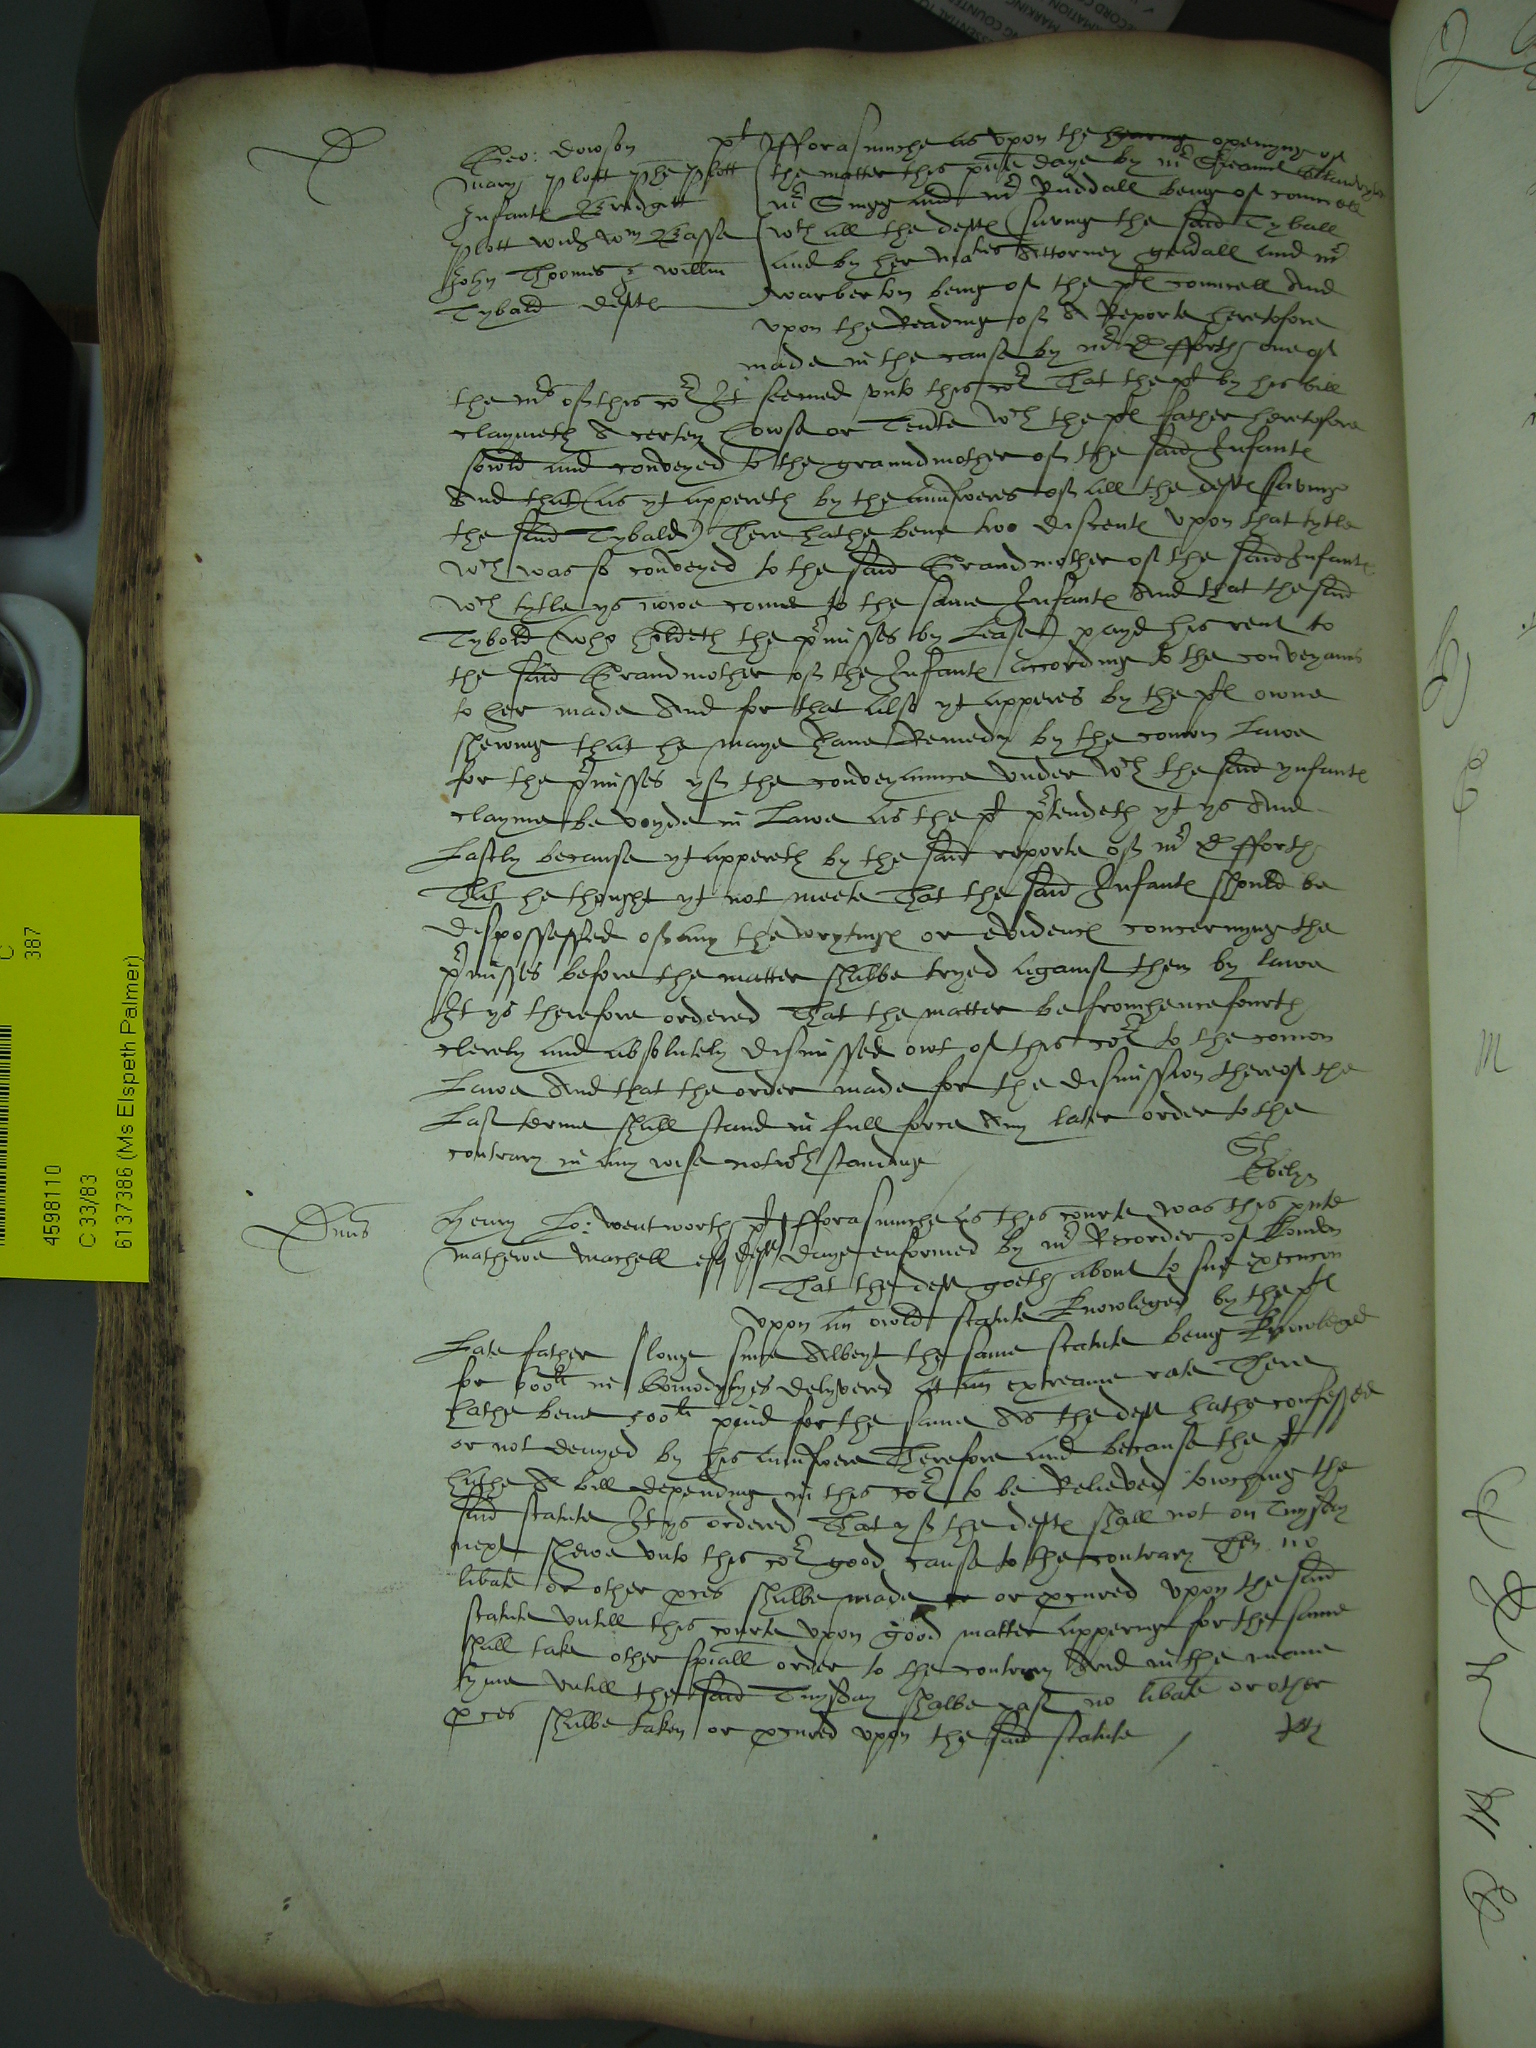 D
Geo: Dowson pt
Mary Plott Phe Plott
Infantℓ Bridgitt
Plott wid Wm Basse
John Thomes & Willm
Tybald deftℓ
Fforasmuche as upon the hearing openyng of
the matter this pnte daye by mr Sieant
mr Snagg and mr Ruddall being of councell
wth all the deftℓ (saving the said Tyball
and by her maties Attorney gen'all and mr
Warberton being of the pℓ councell And
upon the Reading of A Reporte heretofore
made in the cause by mr D Fforth one of
the mrs of this cort It seemed unto this cort That the pt by his bill
claymeth A certen howse or Tente wch the pℓ father heretofore
sowld and conveyed to the graundmother of the said Infantℓ
And that (as yt appereth by the aunsweres of all the deftℓ saving
the said Tybald) There hathe bene two discentℓ upon that tytle
wch was so conveyed to the said Grandmother of the said Infantℓ
wch tytle ys nowe come to the same Infantℓ And that the said
Tybold (who holdeth the p'misses by Lease) payd his rent to
the said Grandmother of the Infantℓ according to the conveyanc
to her made And for that also yt apperes by the pℓ owne
shewing that he maye have Remedy by the comon Lawe
for the p'misses yf the conveyaunce under wch the said ynfantℓ
clayme be voyde in Lawe as the pt p'tendeth yt ys And
Lastly because yt appereth by the said reporte of mr D Fforth
That he thought yt not meete That the said Infantℓ should be
dispossessed of any the wrytingℓ or evidencℓ concernyng the
p'misses before the matter shalbe tryed against them by lawe
It ys therefore ordered That the matter be fromhencefourth
clerely and absolutely dismissed owt of this cort to the comon
Lawe And that the order made for the dismission thereof the
Last terme shall stand in full force Any later order to the
contrary in any wise notwthstanding
Evelyn
Dnus
Henry Lo: Wentworth pt
Mathewe Machell esq deft
Fforasmuche as this courte was this pnte
daye enformed by mr Recorder of London
That the deft goeth about to sue execucon
upon an owld statute knowleged by the pℓ
Late father long since Albeyt the same statute being knowleged
for 600li in Comodytyes delyvered at an extreame rate There
hathe bene 700li paid for the same As the deft hathe confessed
or not denyed by his aunswere Therefore and because the pt
hathe A bill depending in this cort to be Relieved towching the
said statute It ys ordered That yf the deftℓ shall not on Tuysday
next shewe unto this cort good cause to the contrary Then no
libate or other pces shalbe made or or pcured upon the said
statute untill this courte upon good matter appering for the same
shall take other spiall order to the contrary And in the meane
tyme untill the said Tuysday shalbe past no libate or other
pces shalbe taken or pcured upon the said statute /
C
387
4598110
C 33/83
6137386 (Ms Elspeth Palmer)